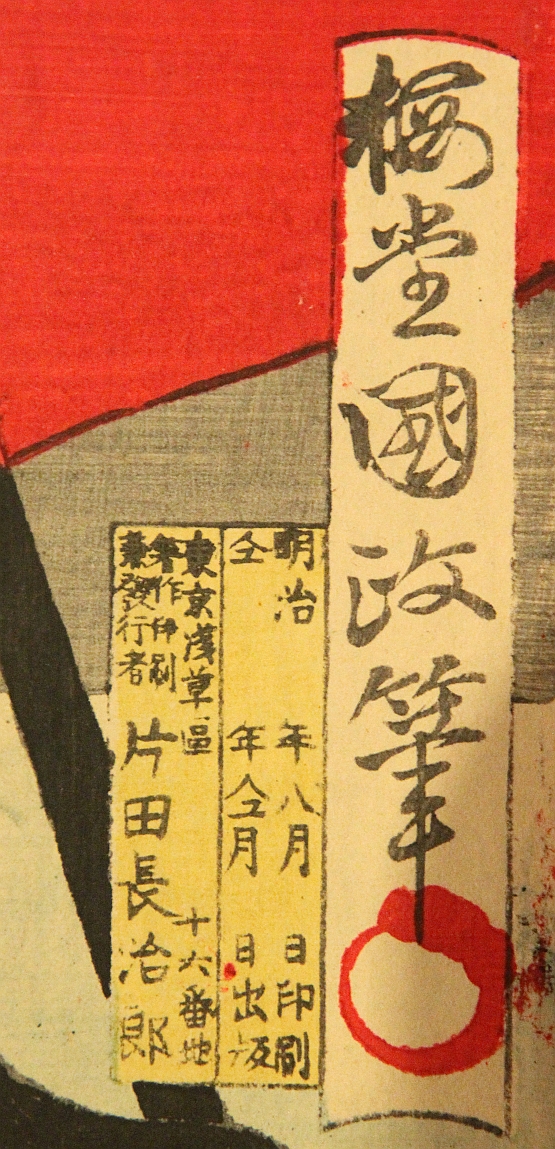 梅堂國政筆
明治 年八月 日印刷
仝 年仝月 日出版
東京浅草區 十六番地
著作印刷
兼發行者 片田長治郎